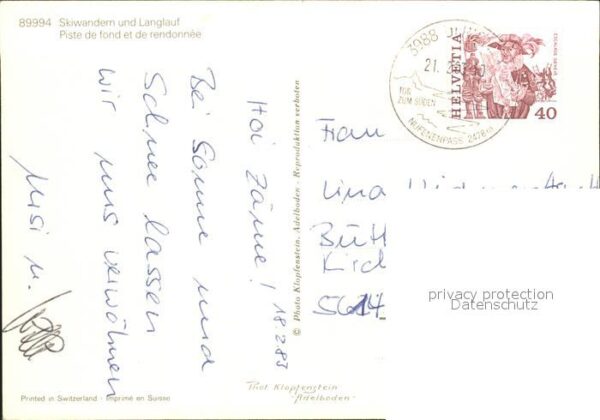 89994 Skiwandern und Langlauf
Piste de fond et de rendonnée
Hoi Zäme! 18.2.83
Bei Sonne und
Schnee lassen
wir uns verwöhnen
Misi u.
© Photo Klopfenstein, Adelboden - Reproduktion verboten
3988
21. 2.
TOR
ZUM SÜDEN
NUFENENPASS 2478m
HELVETIA
ESCALADE GENÈVE
40
Frau
Lina
Bütt
Kirch
5614
privacy protection
Datenschutz
Printed in Switzerland - Imprimé en Suisse
Phot Klopfenstein
Adelboden